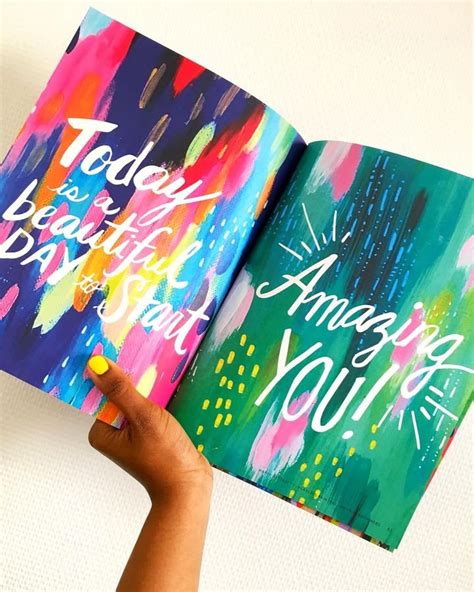 Today
is a
beautiful
DAY to
start
Amazing
YOU!